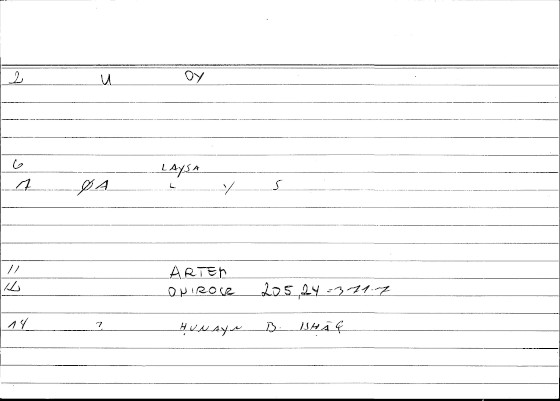 2 U OY
6 LAYSA
7 ØA L Y S
11 ARTEM
12 ONIROCR 205,24 = 311.7
14 ? ḤUNAYN B. ISḤĀQ